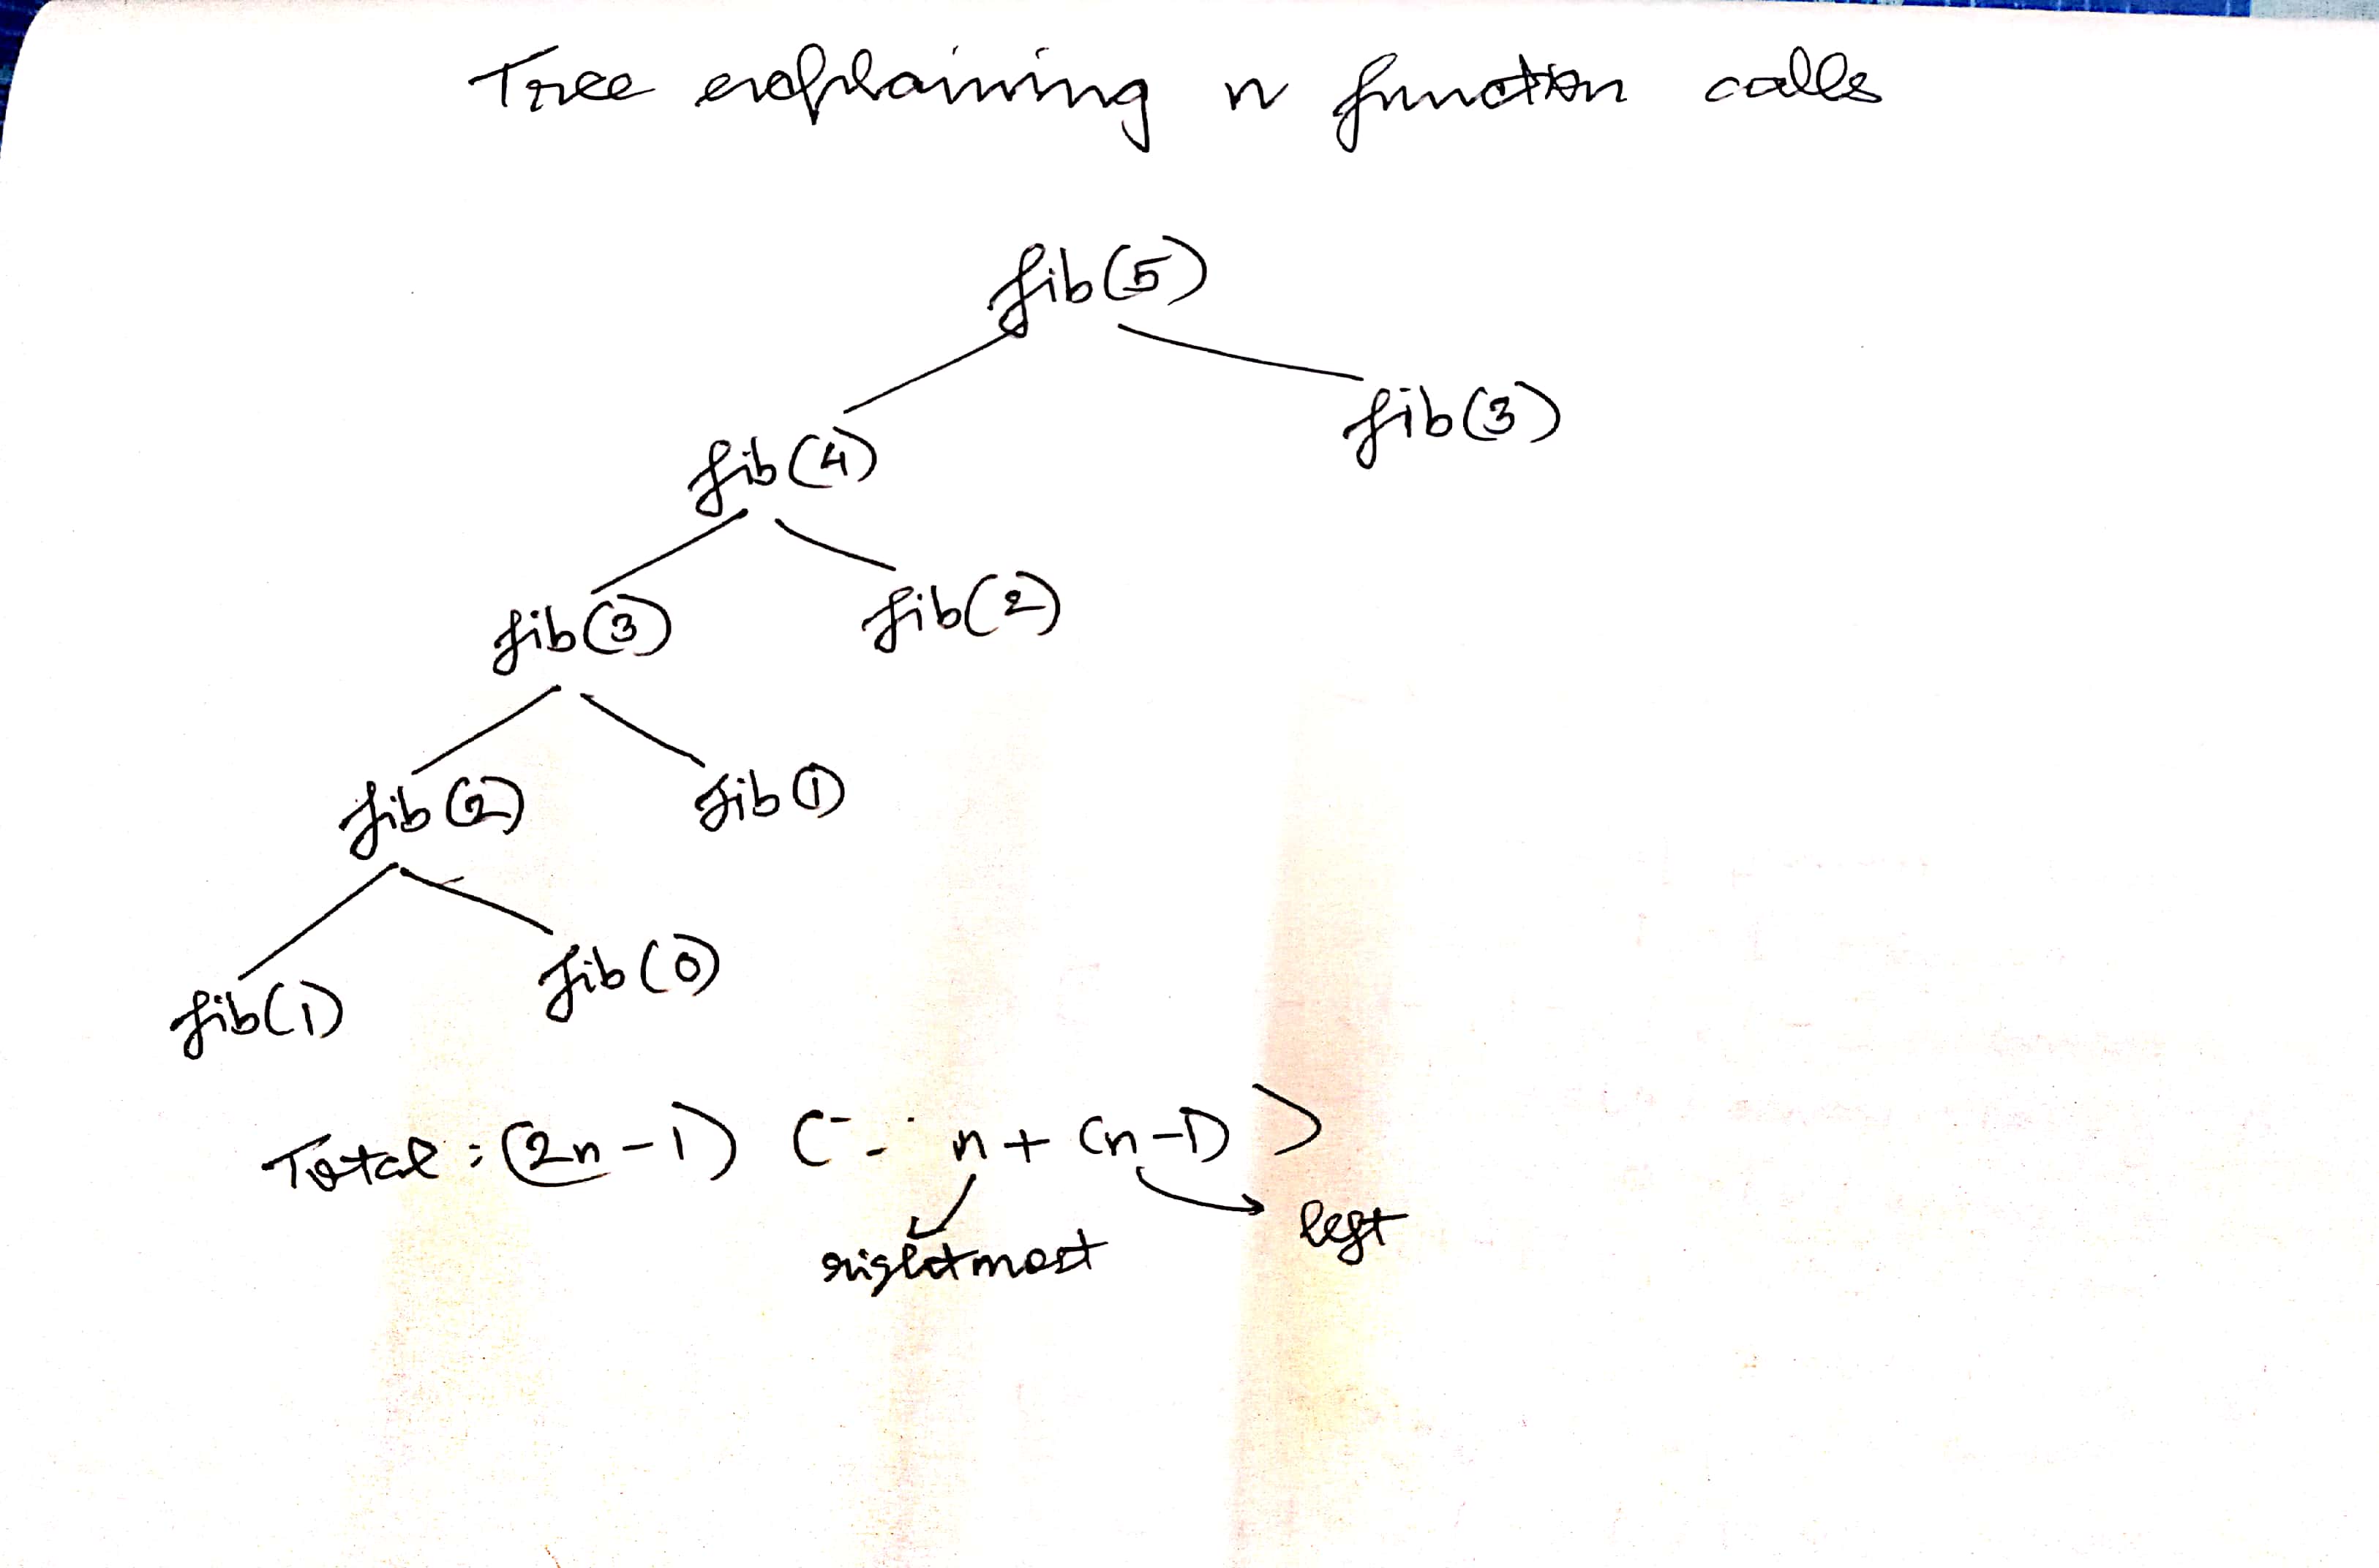 Tree explaining n function calls
fib(5)
fib(4)
fib(3)
fib(3)
fib(2)
fib(2)
fib(1)
fib(1)
fib(0)
Total : (2n-1) (∵ n + (n-1) )
rightmost
left